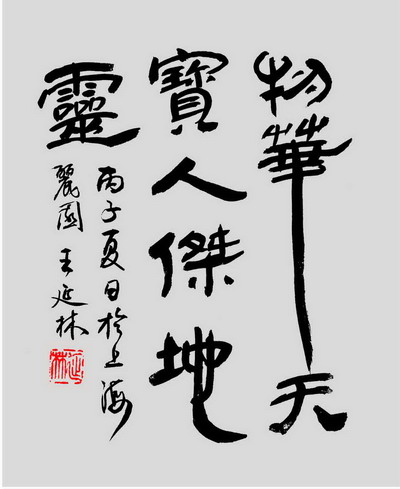 物華天
寶人傑地
靈
丙子夏日於上海
麗園王延林
延林